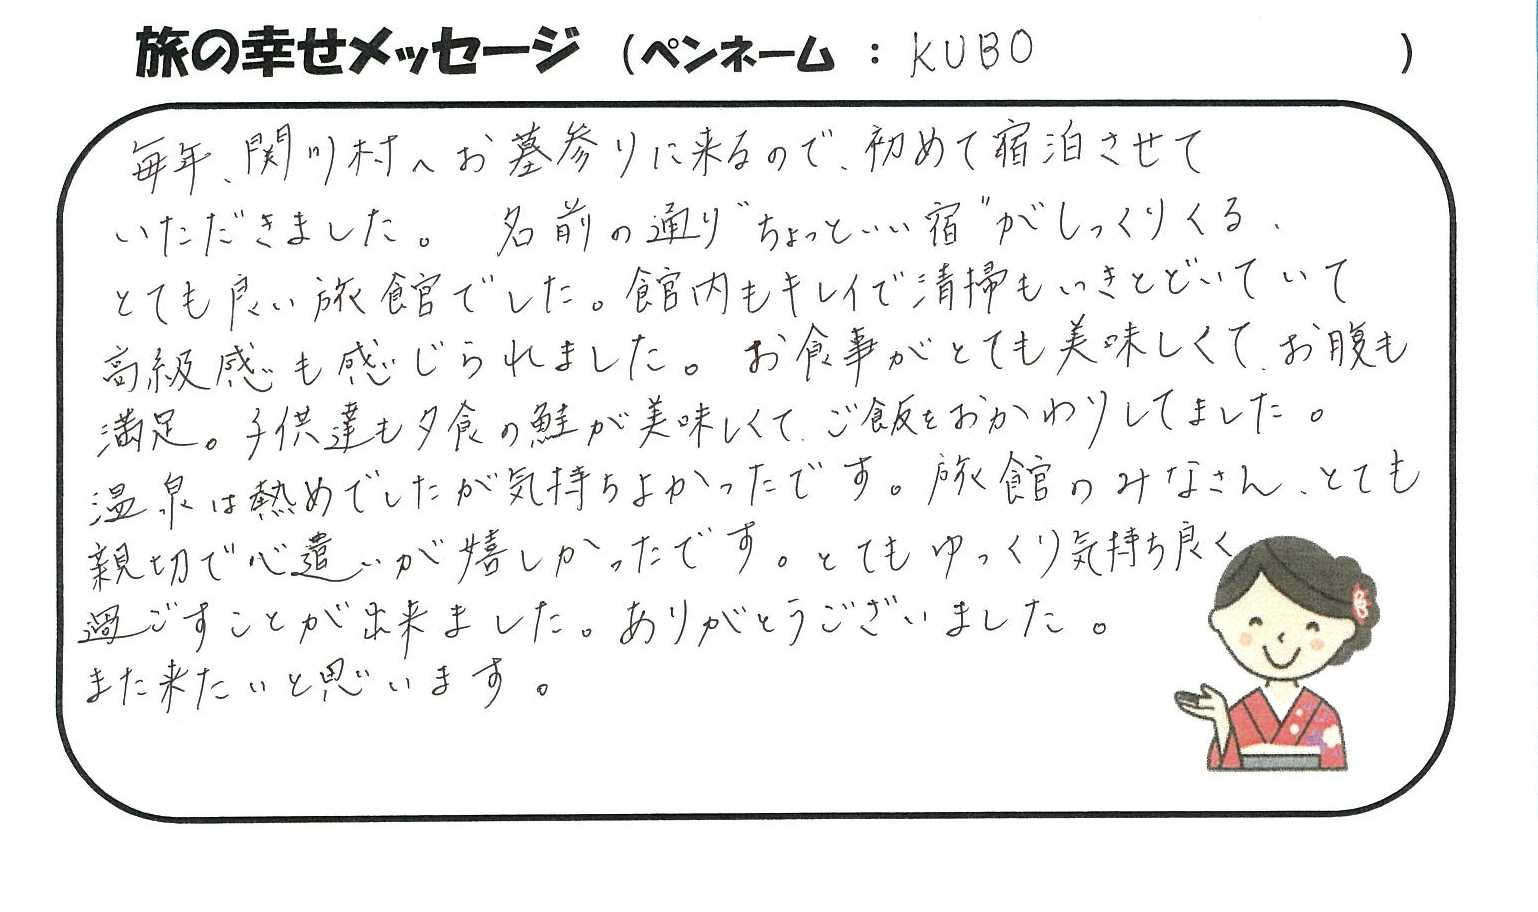 旅の幸せメッセージ（ペンネーム：KUBO）
毎年、関川村へお墓参りに来るので、初めて宿泊させて
いただきました。名前の通り"ちょっといい宿"がしっくりくる、
とても良い旅館でした。館内もキレイで清掃もいきとどいていて
高級感も感じられました。お食事がとても美味しくて、お腹も
満足。子供達も夕食の鮭が美味しくて、ご飯をおかわりしてました。
温泉は熱めでしたが気持ちよかったです。旅館のみなさん、とても
親切で心遣いが嬉しかったです。とてもゆっくり気持ち良く
過ごすことが出来ました。ありがとうございました。
また来たいと思います。